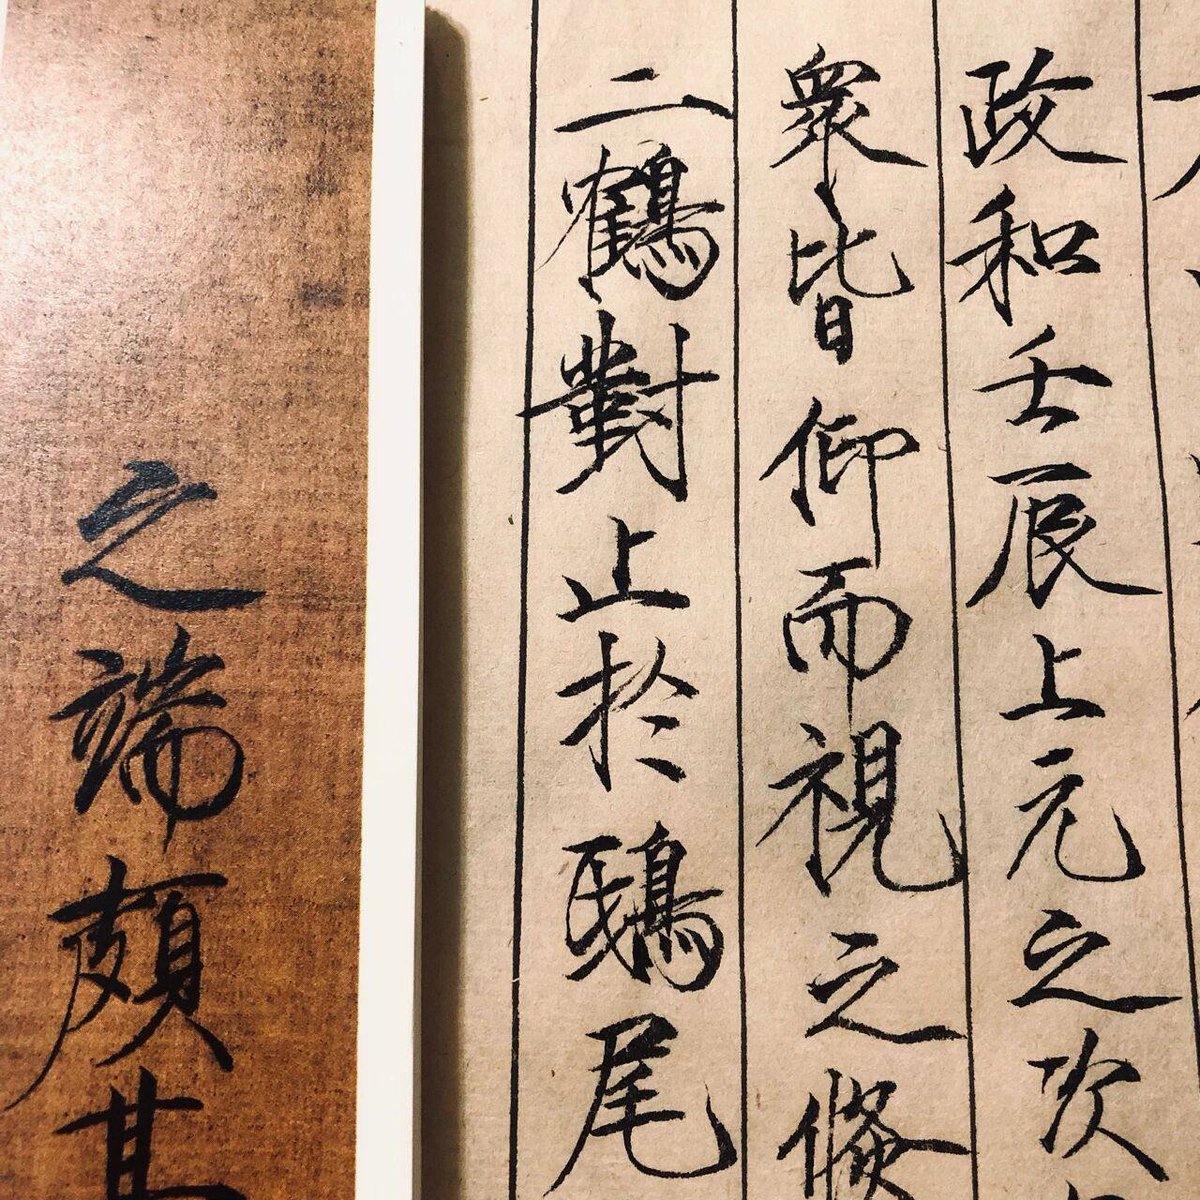 政和壬辰上元之次
衆皆仰而視之倏
二鶴對止於鴟尾
之端頗甚